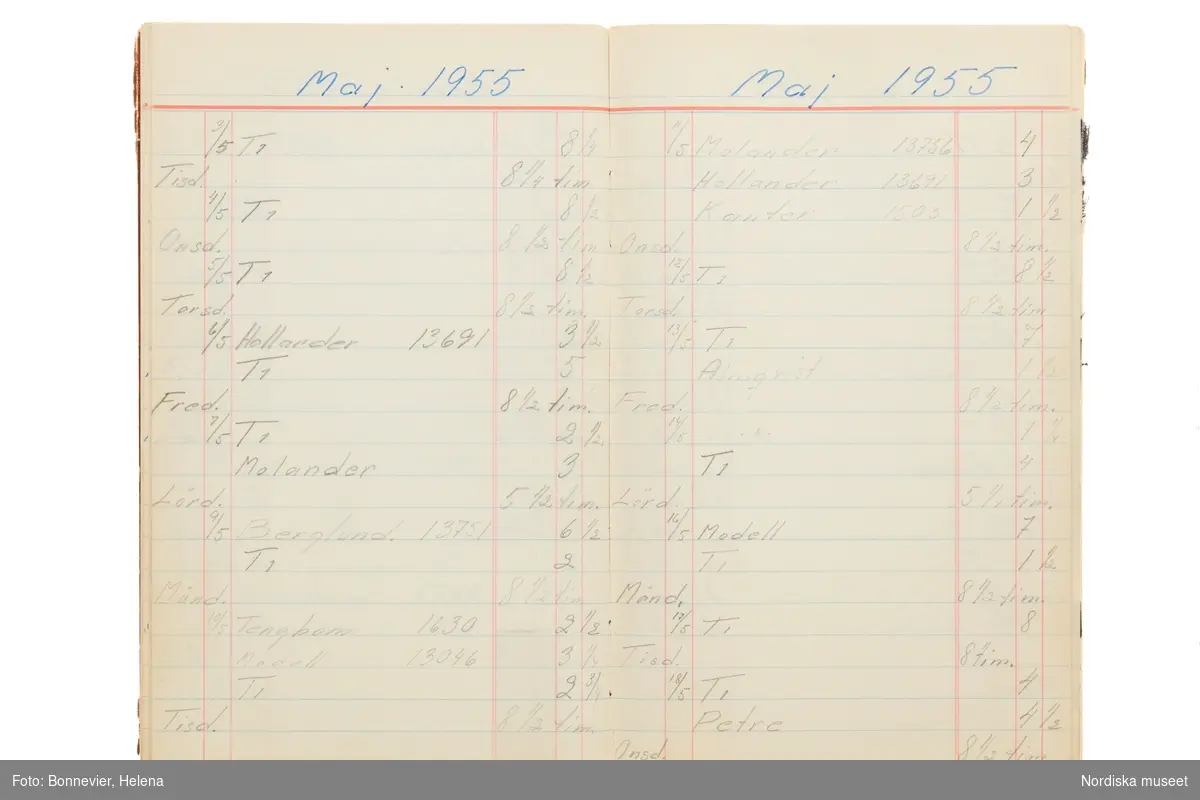 Maj. 1955
3/5 T1 8 1/4
Tisd. 8 1/4 tim
4/5 T1 8 1/2
Onsd. 8 1/2 tim.
5/5 T1 8 1/2
Torsd. 8 1/2 tim.
6/5 Hollander 13691 3 1/2
T1 5
Fred. 8 1/2 tim.
7/5 T1 2 1/2
Molander 3
Lörd. 5 1/2 tim.
9/5 Berglund. 13751 6 1/2
T1 2
Månd. 8 1/2 tim
10/5 Tengbom 1630 2 1/2
Modell 13046 3
T1 2 3/4
Tisd. 8 1/2 tim.
Maj 1955
11/5 Molander 13756 4
Hollander 13691 3
Kanter 1503 1 1/2
Onsd. 8 1/2 tim.
12/5 T1 8 1/2
Torsd. 8 1/2 tim
13/5 T1 7
Almqvist 1 1/2
Fred. 8 1/2 tim.
14/5 1
T1 4
Lörd. 5 tim.
16/5 Modell 7
T1 1 1/2
Månd. 8 1/2 tim.
17/5 T1 8
Tisd. 8 tim.
18/5 T1 4
Petre 4 1/2
Onsd. 8 1/2 tim
Foto: Bonnevier, Helena
Nordiska museet